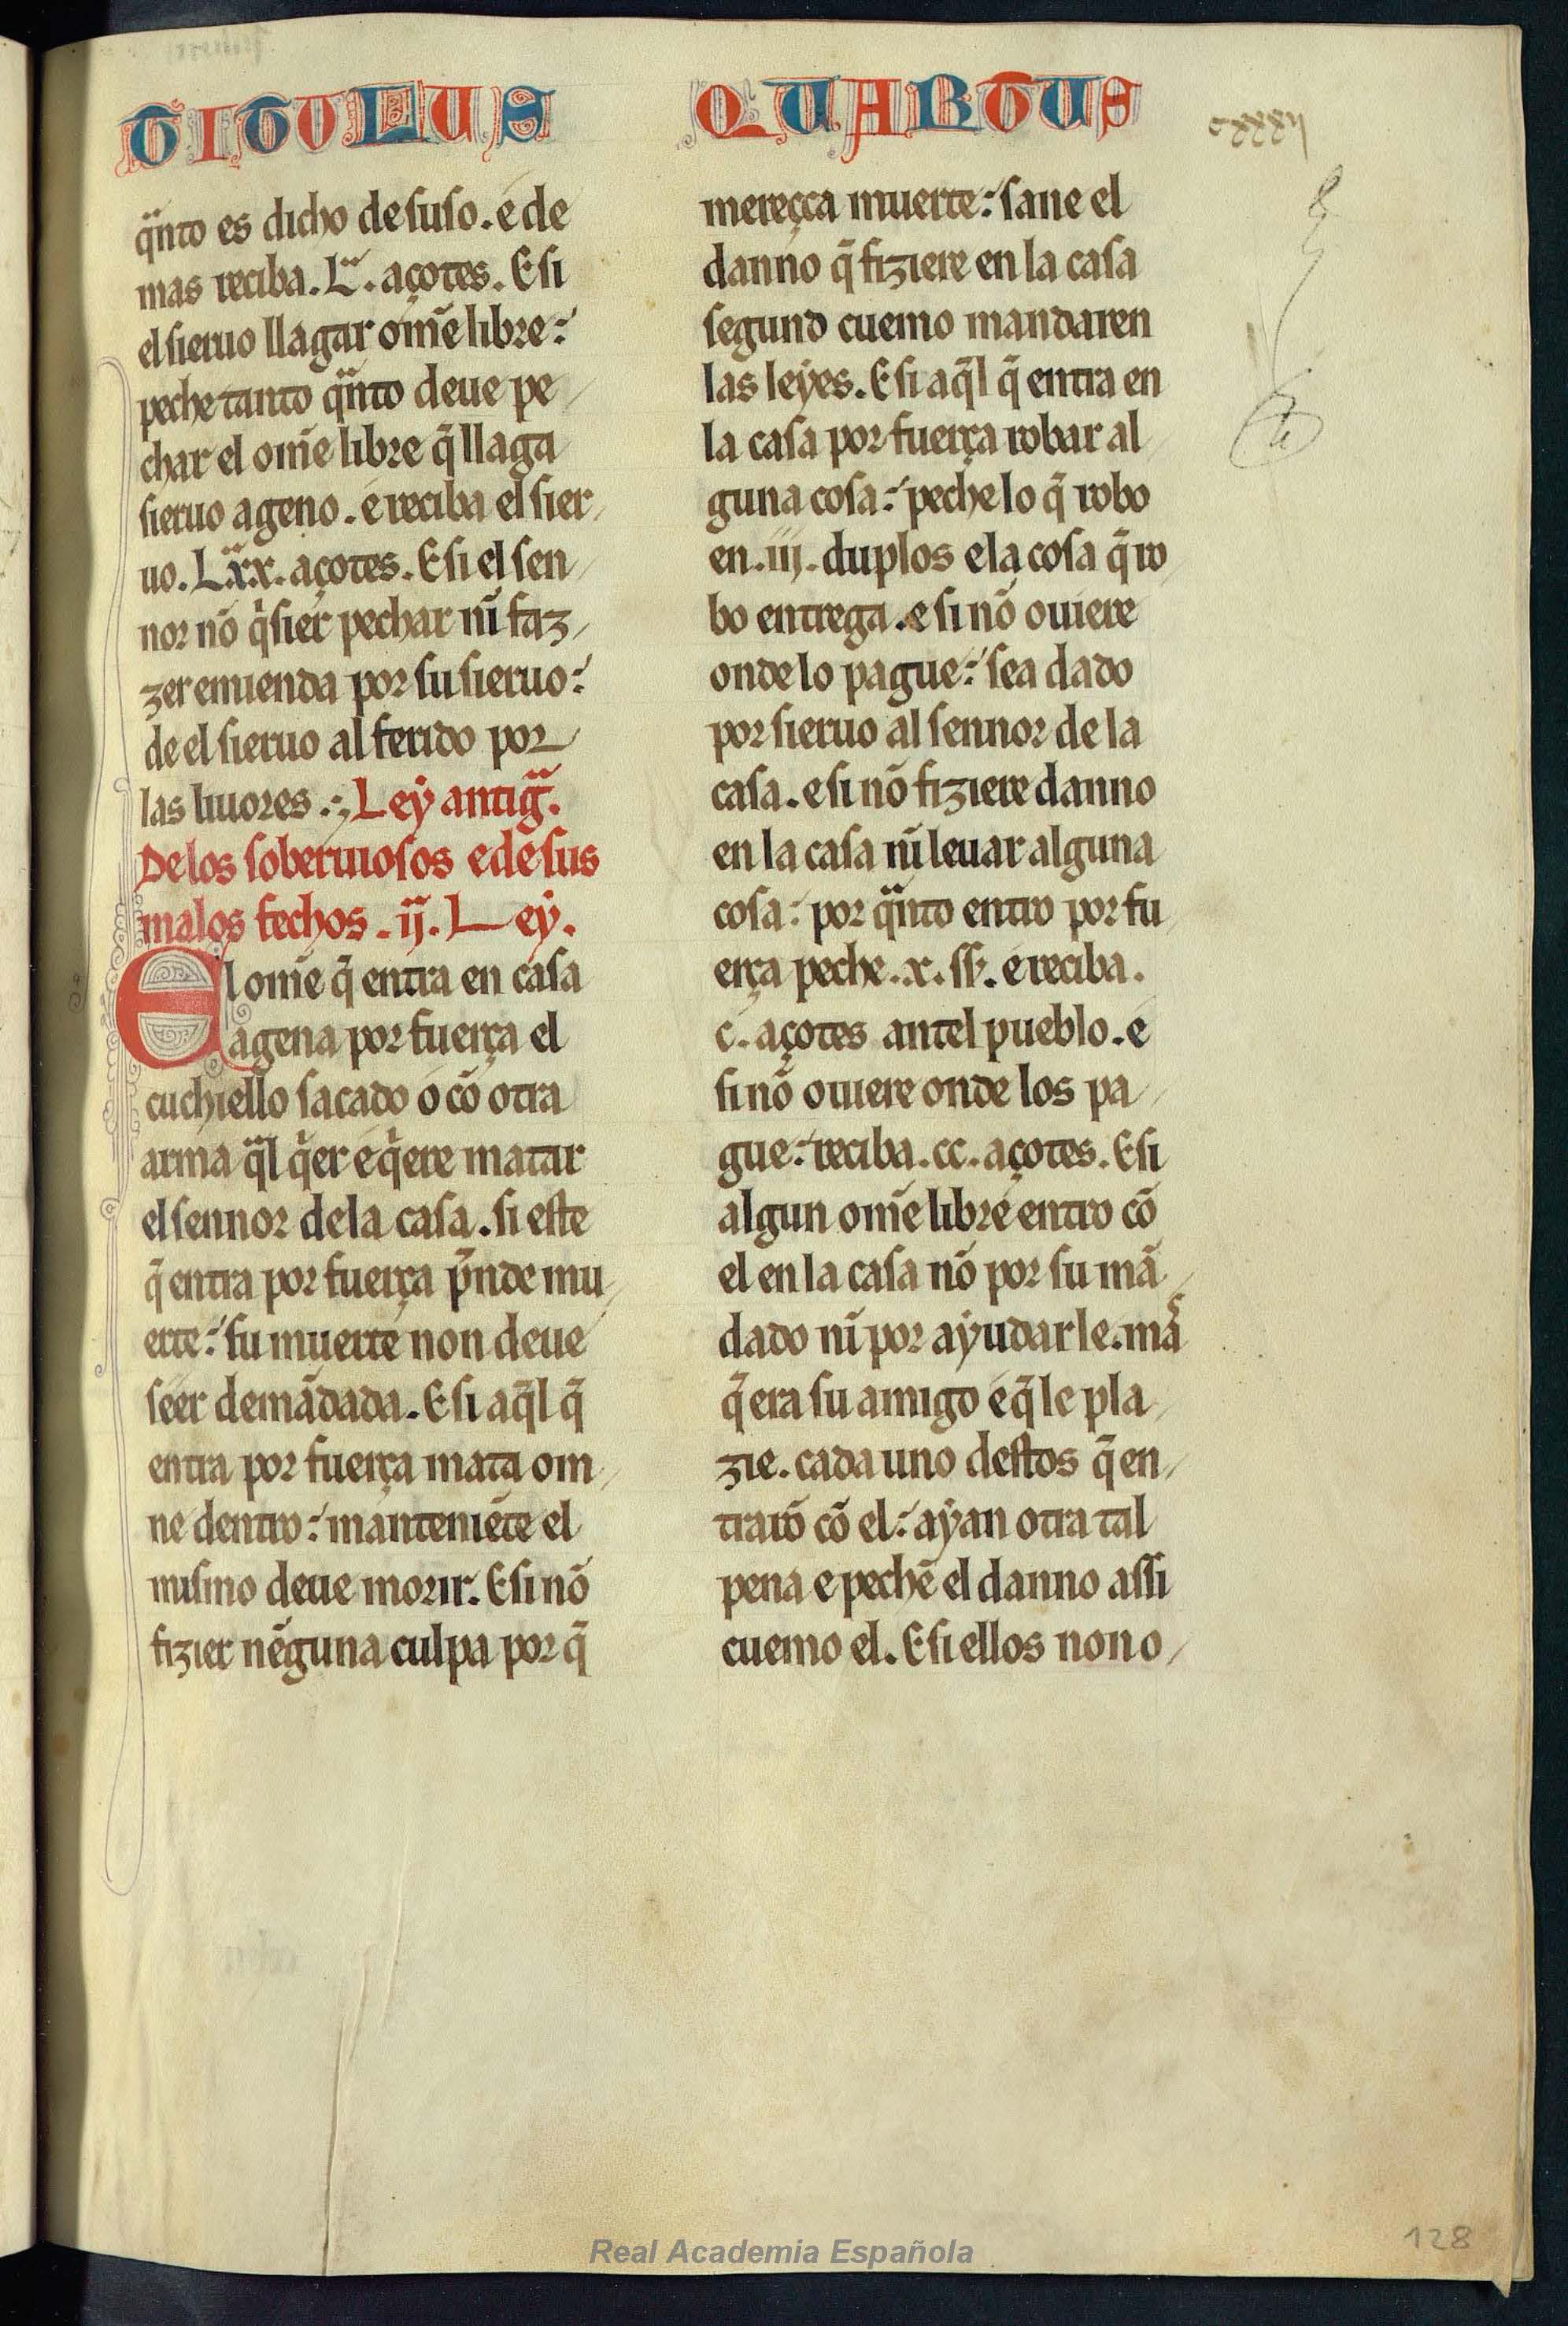 TITULUS QUARTUS
cxxxij
q̃nto es dicho de suso. e de
mas reciba. L.ͣ açotes. E si
el sieruo llagar om̃e libre:
peche tanto q̃nto deue pe
char el om̃e libre q̃ llaga
sieruo ageno. e reciba el sier
uo. Lxx. açotes. E si el sen
nor nõ q̾sier pechar nĩ faz
zer emienda por su sieruo:
de el sieruo al ferido por
las liuores. Ley antig̃.
De los soberuiosos e de sus
malos fechos. ij. Ley.
El om̃e q̃ entra en casa
agena por fuerça el
cuchiello sacado o cõ otra
arma q̃l q̾er e q̾ere matar
el sennor de la casa. si este
q̃ entra por fuerça p̃nde mu
erte: su muerte non deue
seer demãdada. E si aq̃l q̃
entra por fuerça mata om
ne dentro: manteniẽte el
mismo deue morir. E si nõ
fizier nẽguna culpa por q̃
mereçca muerte: sane el
danno q̃ fiziere en la casa
segund cuemo mandaren
las leyes. E si aq̃l q̃ entra en
la casa por fuerça robar al
guna cosa: peche lo q̃ robo
en. iij. duplos e la cosa q̃ ro
bo entrega. e si nõ ouiere
onde lo pague: sea dado
por sieruo al sennor de la
casa. e si nõ fiziere danno
en la casa nĩ leuar alguna
cosa: por q̃nto entro por fu
erça peche. x. ss. e reciba.
c. açotes antel pueblo. e
si nõ ouiere onde los pa
gue: reciba. cc. açotes. E si
algun om̃e libre entro cõ
el en la casa nõ por su mã
dado nĩ por ayudarle. mas
q̃ era su amigo e q̃ le pla
zie. cada uno destos q̃ en
trarõ cõ el: ayan otra tal
pena e pechẽ el danno assi
cuemo el. E si ellos non o
128
Real Academia Española